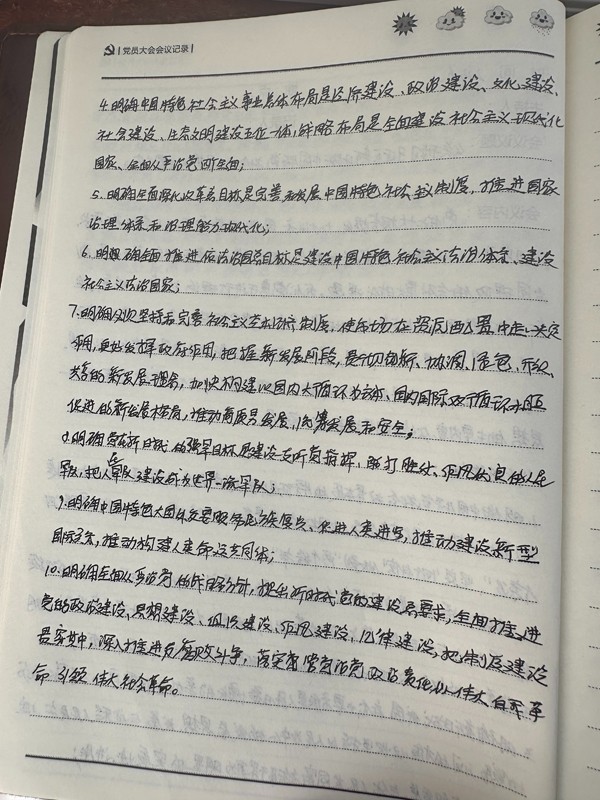 党员大会会议记录
4.明确中国特色社会主义事业总体布局是经济建设、政治建设、文化建设、
社会建设、生态文明建设五位一体,战略布局是全面建设社会主义现代化
国家、全面从严治党四个全面;
5.明确全面深化改革总目标是完善和发展中国特色社会主义制度,推进国家
治理体系和治理能力现代化;
6.明确全面推进依法治国总目标是建设中国特色社会主义法治体系、建设
社会主义法治国家;
7.明确必须坚持和完善社会主义基本经济制度,使市场在资源配置中起决定
作用,更好发挥政府作用,把握新发展阶段,贯彻创新、协调、绿色、开放、
共享的新发展理念,加快构建以国内大循环为主体、国内国际双循环相互
促进的新发展格局,推动高质量发展,统筹发展和安全;
8.明确党在新时代的强军目标是建设一支听党指挥、能打胜仗、作风优良的人民
军队,把人民军队建设成为世界一流军队;
9.明确中国特色大国外交要服务民族复兴、促进人类进步,推动建设新型
国际关系,推动构建人类命运共同体;
10.明确全面从严治党的战略方针,提出新时代党的建设总要求,全面推进
党的政治建设、思想建设、组织建设、作风建设、纪律建设,把制度建设
贯穿其中,深入推进反腐败斗争,落实管党治党政治责任,以伟大自我革
命引领伟大社会革命。